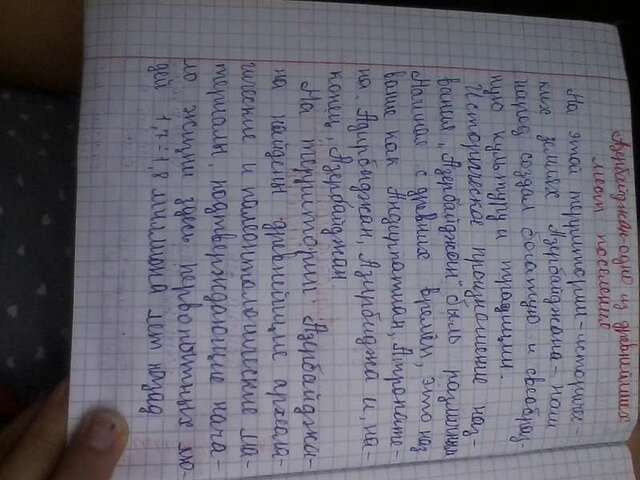 Азербайджан-одно из древнейших
мест поселений
На этой территории-историчес-
ких землях Азербайджана-наш
народ создал богатую и своеобраз-
ную культуру и традиции.
Историческое произношение наз-
вания „Азербайджан" было различным
Начиная с древних времён, это наз
вание как Андирпатиан, Атропате-
на, Адирбиджан, Азирбиджа и, на-
конец, Азербайджан
На территории Азербайджа-
на найдены древнейшие археоло-
гические и палеонтологические ма-
териалы, подтверждающие нача-
ло жизни здесь первобытных лю-
дей 1,7-1,8 миллиона лет назад